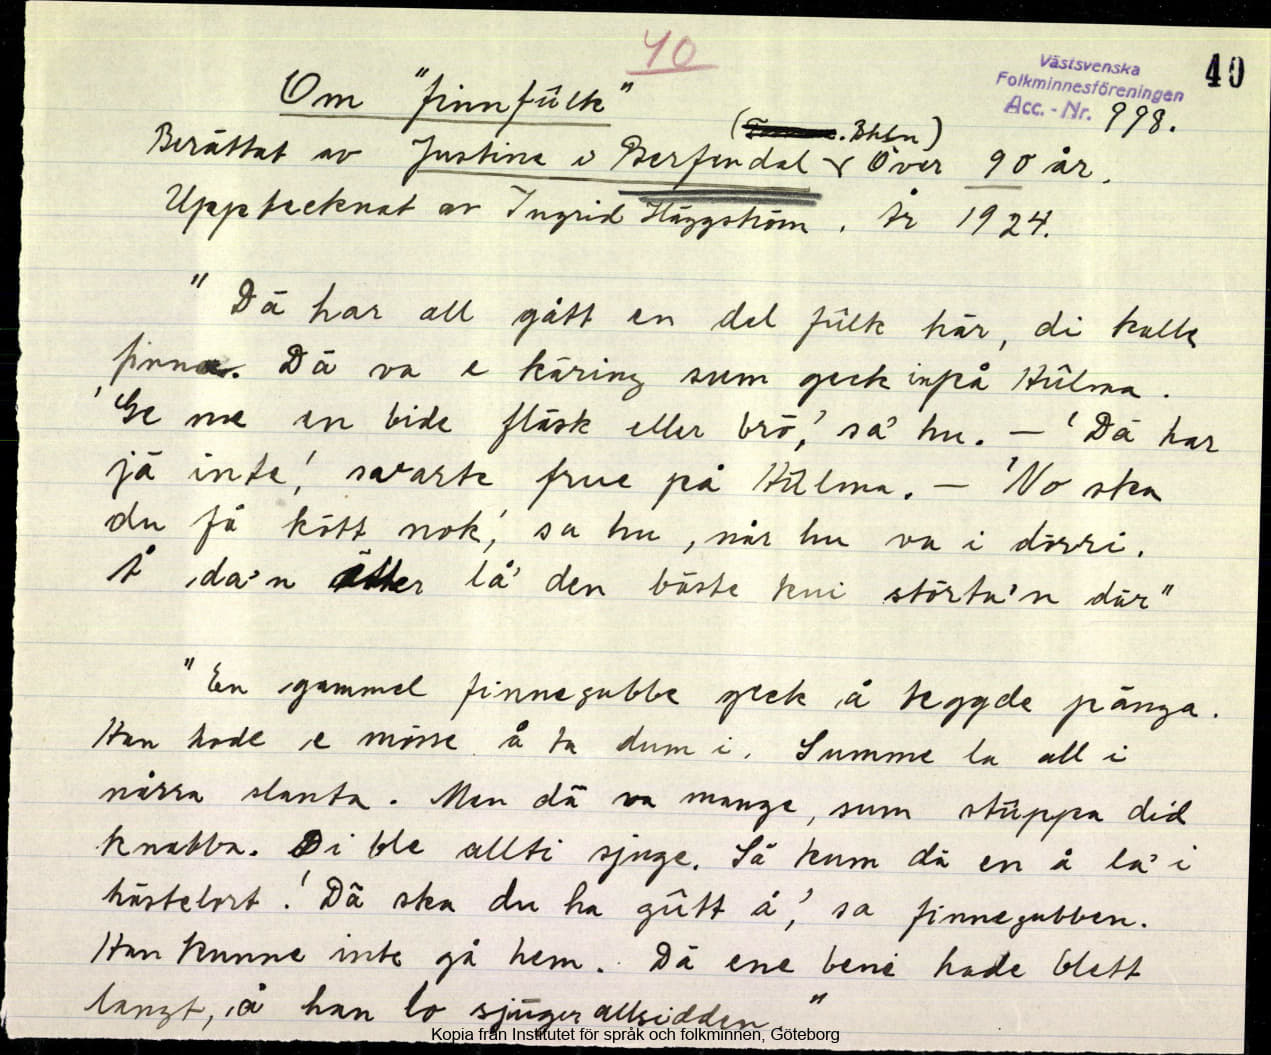 40
40
Västsvenska
Folkminnesföreningen
Acc. - Nr. 998.
Om "finnfûlk"
(Bhln)
Berättat av Justine i Berfendal Över 90 år.
Upptecknat av Ingrid Häggström. År 1924.
"Dä har all gått en del fûlk här, di kalle
finna. Dä va e käring sum geck inpå Hûlma.
'Ge me en bide fläsk eller brö,' sa' hu. — 'Dä har
jä inte,' svarte frue på Hûlma. — 'No ska
du få kött nok,' sa hu, når hu va i dörri.
Å da'n ätter lå' den bäste kui störta'n där"
"En gammel finnegubbe geck å teggde pänga.
Han hade e mösse å ta dum i. Summe la all i
nårra slanta. Men dä va mange, sum stûppa did
knabba. Di ble allti sjuge. Så kum dä en å la' i
hästelort. 'Dä ska du ha gûtt å,' sa finnegubben.
Han kunne inte gå hem. Dä ene beni hade blett
langt, å han lo sjuger allsidden."
Kopia från Institutet för språk och folkminnen, Göteborg